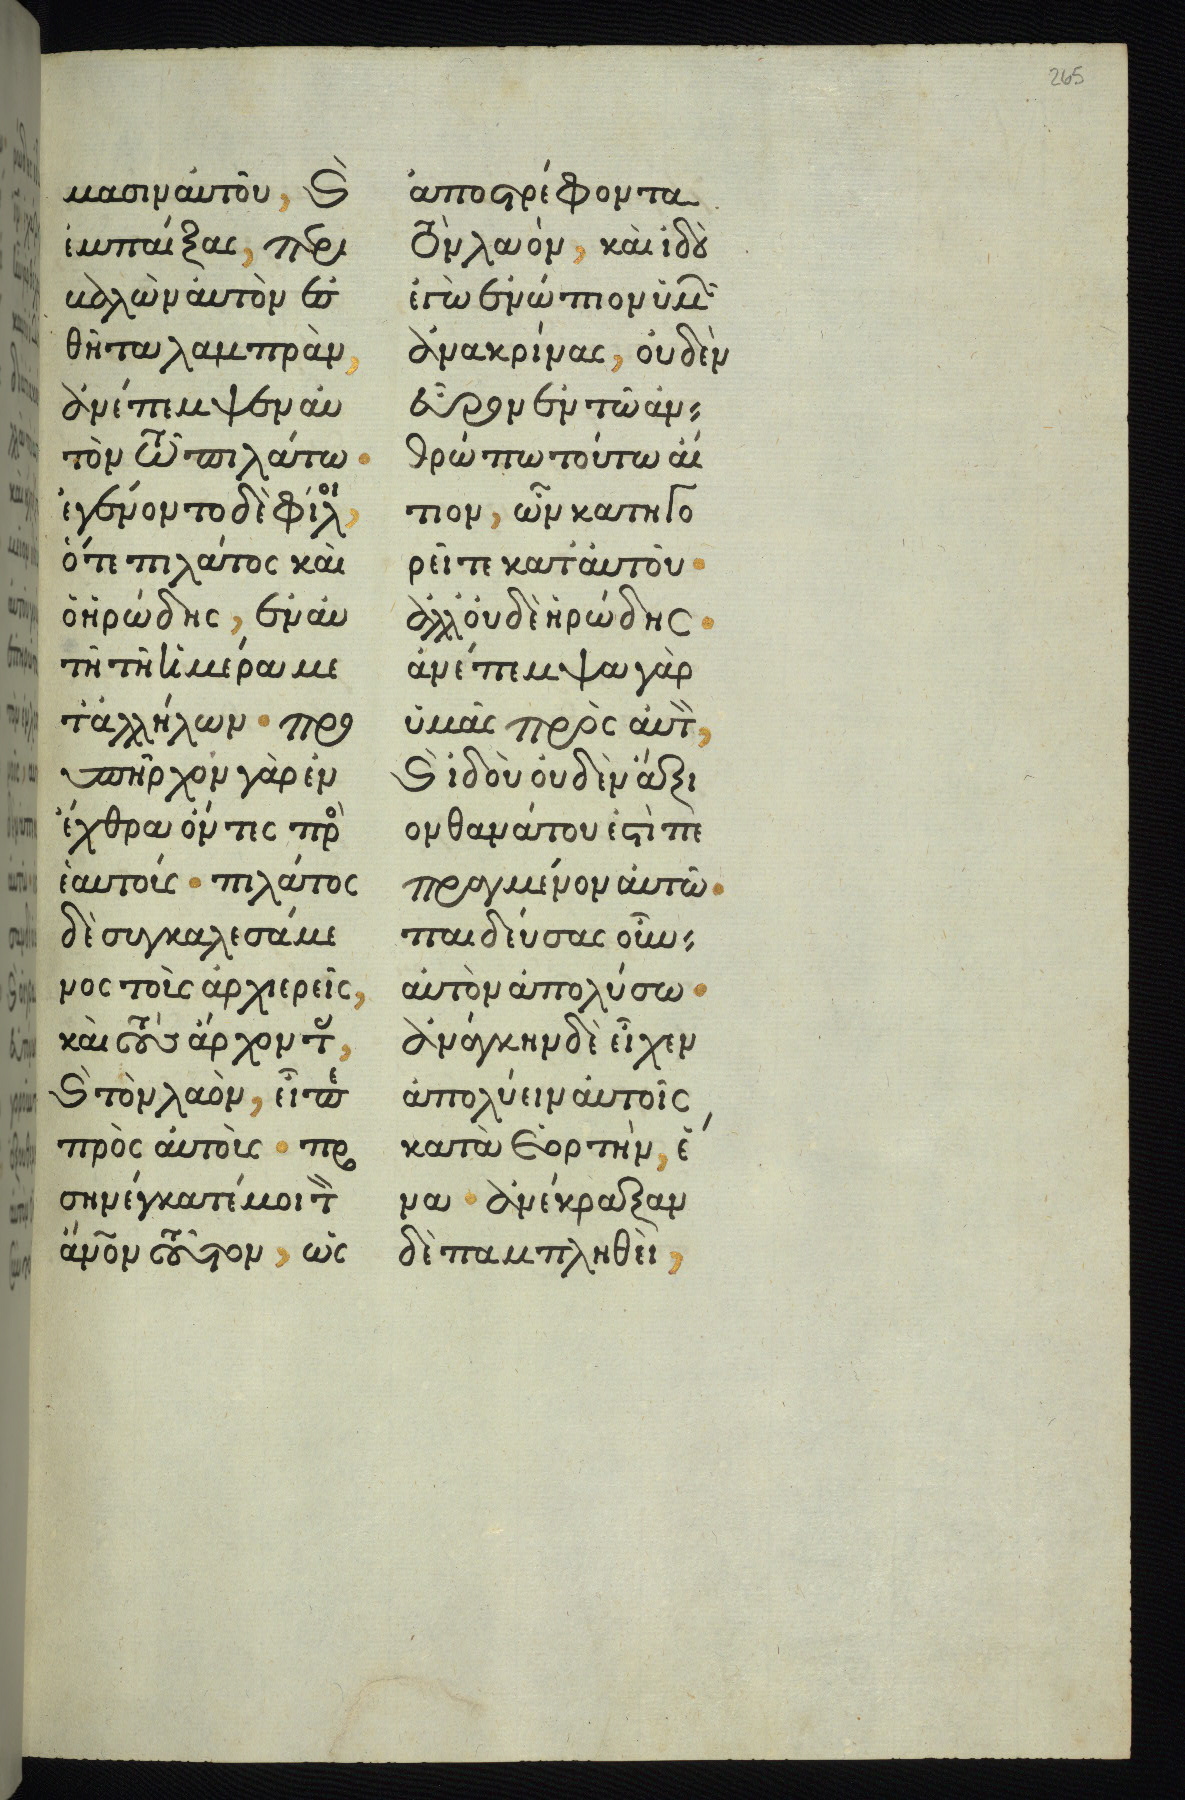 265
μασιν αὐτοῦ, καὶ
ἐμπαίξας, περι
βαλὼν αὐτὸν ἐσ
θῆτα λαμπρὰν,
ἀνέπεμψεν αὐ
τὸν τῶ πιλάτω·
ἐγένοντο δὲ φίλοι,
ὅτε πιλάτος καὶ
ὁ ἡρώδης, ἐν αὐ
τῆ τῆ ἡμέρα με
τ' ἀλλήλων· προ
ὑπῆρχον γὰρ ἐν
ἔχθρα ὄντες πρὸς
ἑαυτούς· πιλάτος
δὲ συγκαλεσάμε
νος τοὺς ἀρχιερεῖς,
καὶ τοὺς ἄρχοντας,
καὶ τὸν λαὸν, εἶπε
πρὸς αὐτοὺς· προ
σηνέγκατέ μοι τὸν
ἄνον τοῦτον, ὡς
ἀποστρέφοντα
τὸν λαόν, καὶ ἰδοὺ
ἐγὼ ἐνώπιον ὑμῶν
ἀνακρίνας, οὐδὲν
εὗρον ἐν τῶ ἀν
θρώπω τούτω αἴ
τιον, ὧν κατηγο
ρεῖτε κατ' αὐτοῦ·
ἀλλ' οὐδὲ ἡρώδης·
ἀνέπεμψα γὰρ
ὑμᾶς πρὸς αὐτὸν,
καὶ ἰδοὺ οὐδὲν ἄξι
ον θανάτου ἐστὶ πε
πραγμένον αὐτῶ·
παιδεύσας οὖν
αὐτὸν ἀπολύσω·
ἀνάγκην δὲ εἶχεν
ἀπολύειν αὐτοῖς
κατὰ ἑορτὴν, ἕ
να· ἀνέκραξαν
δὲ παμπληθεὶ,